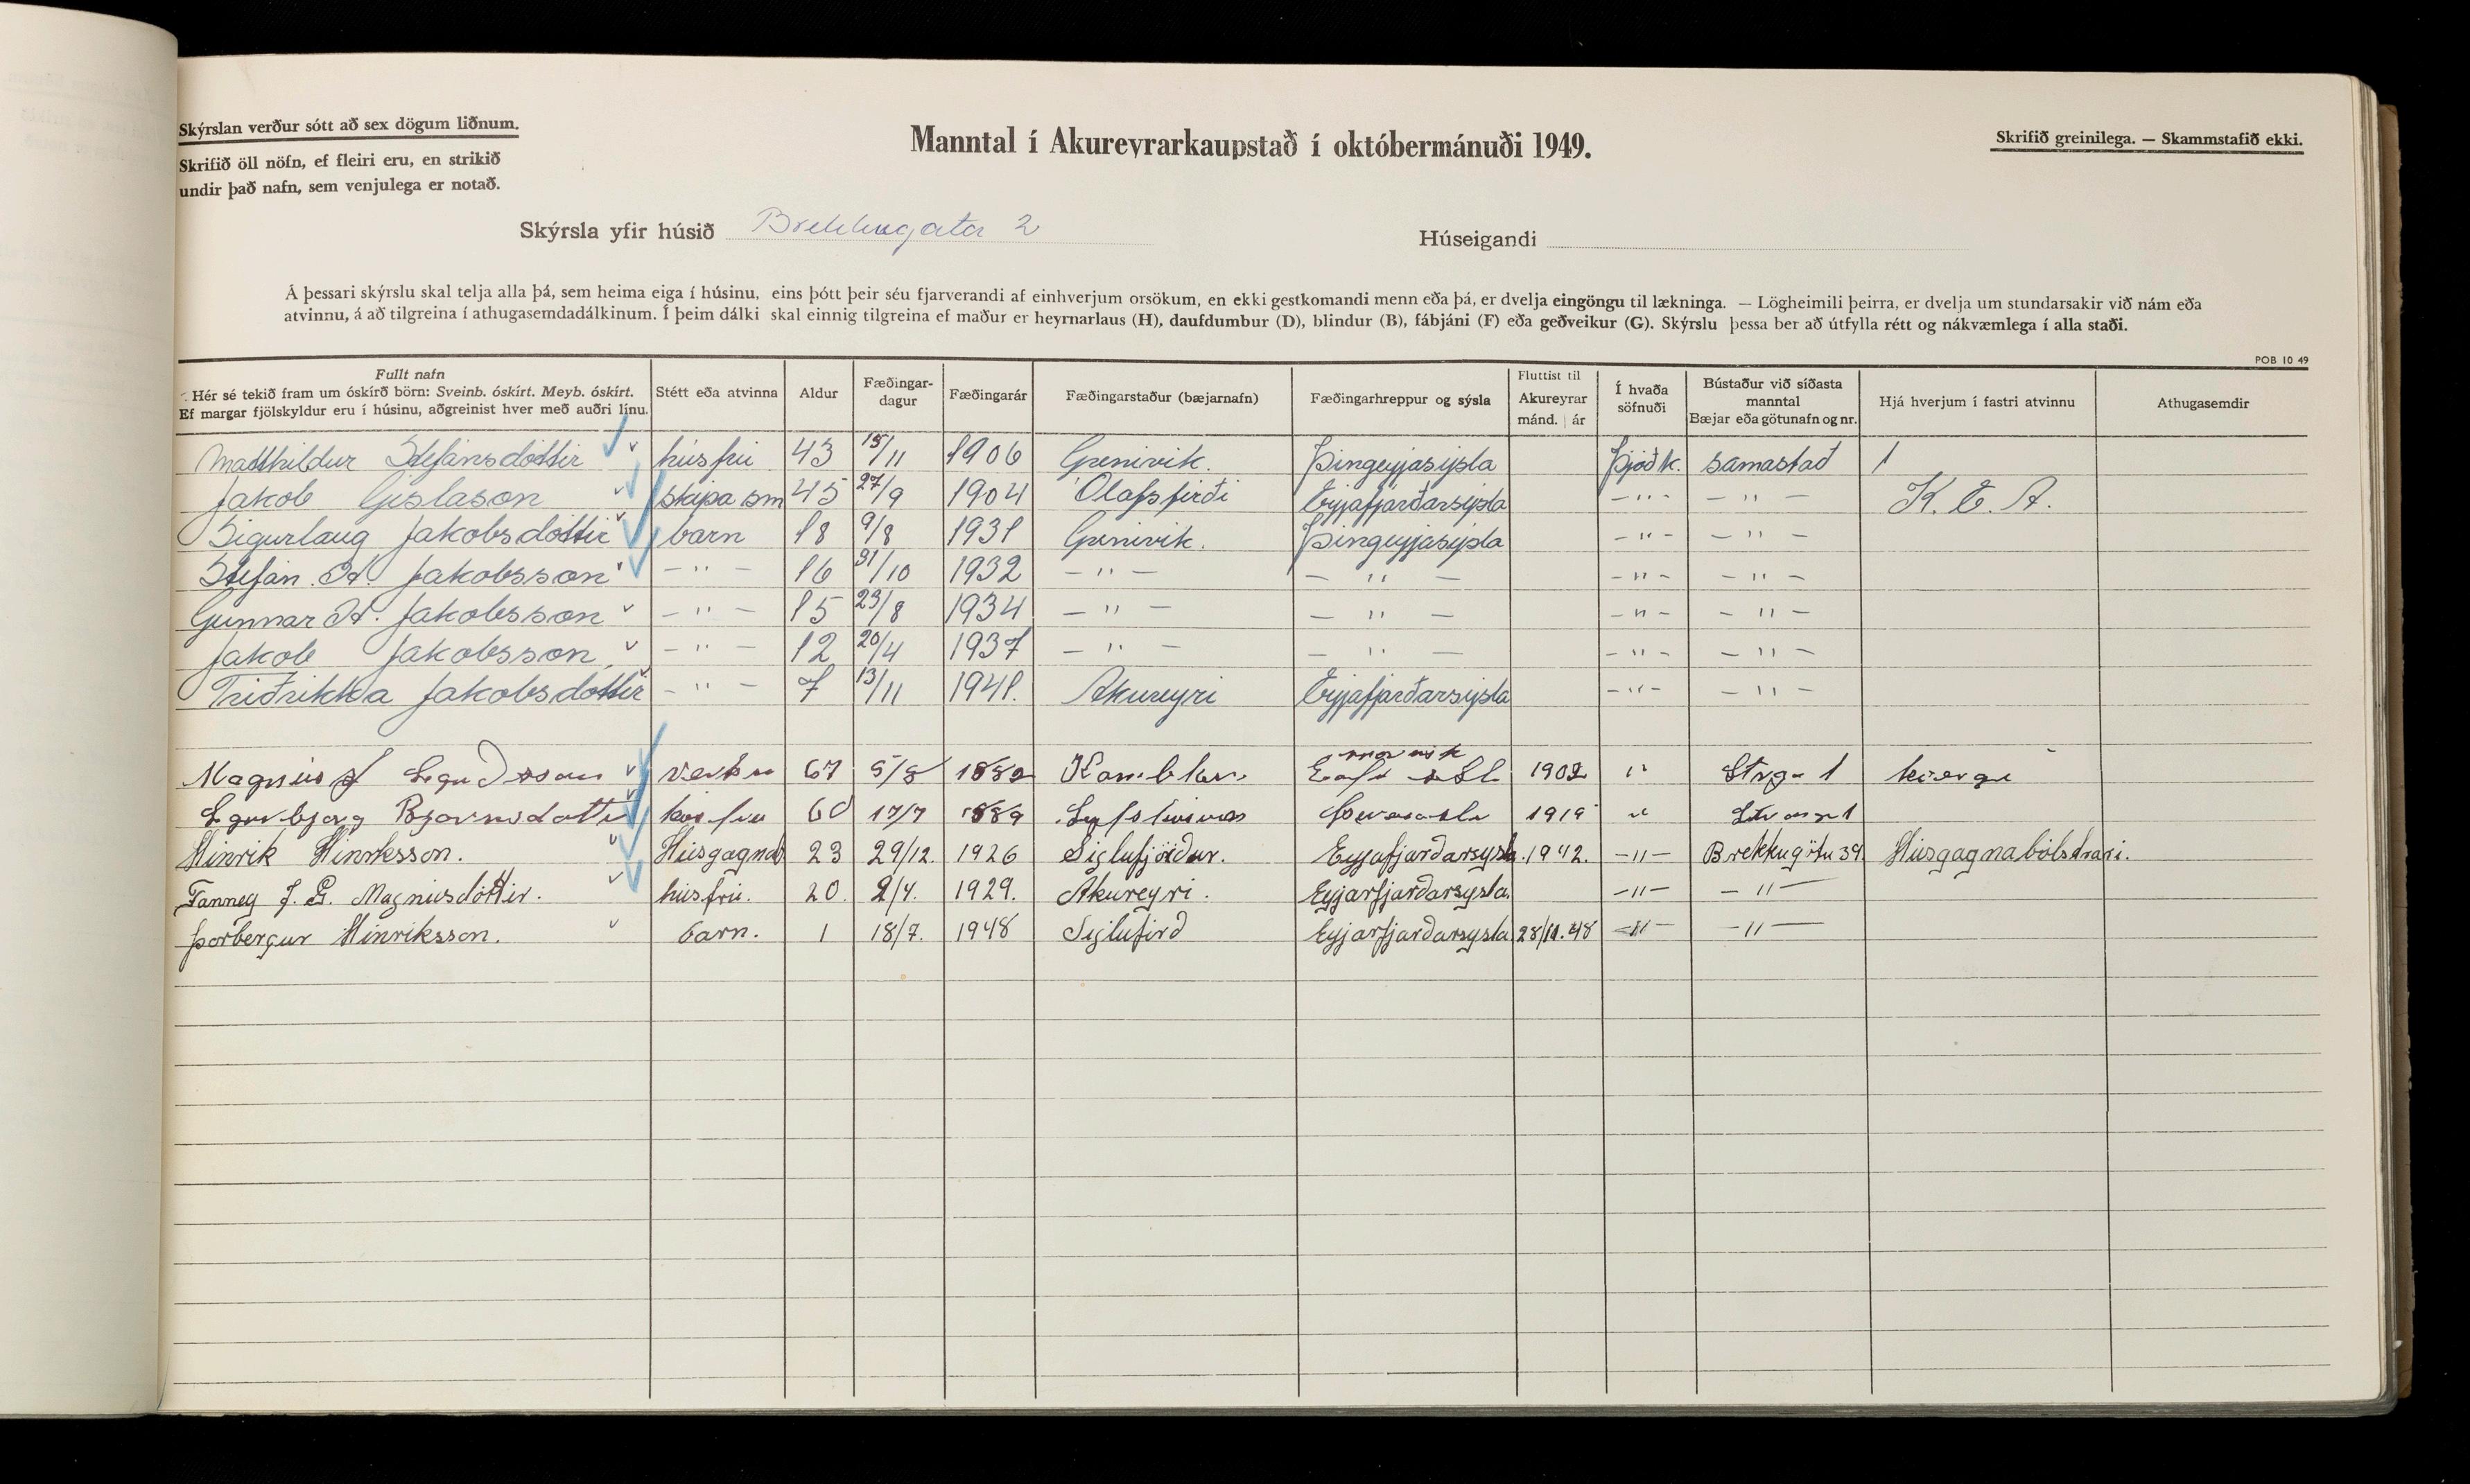 Skýrslan verður sótt að sex dögum liðnum.
Skrifið öll nöfn, ef fleiri eru, en strikið
undir það nafn, sem venjulega er notað.
Manntal í Akureyrarkaupstað í októbermánuði 1949.
Skrifið greinilega. — Skammstafið ekki.
Skýrsla yfir húsið Brekkugata 2
Húseigandi
Á þessari skýrslu skal telja alla þá, sem heima eiga í húsinu, eins þótt þeir séu fjarverandi af einhverjum orsökum, en ekki gestkomandi menn eða þá, er dvelja eingöngu til lækninga. — Lögheimili þeirra, er dvelja um stundarsakir við nám eða
atvinnu, á að tilgreina í athugasemdadálkinum. Í þeim dálki skal einnig tilgreina ef maður er heyrnarlaus (H), daufdumbur (D), blindur (B), fábjáni (F) eða geðveikur (G). Skýrslu þessa ber að útfylla rétt og nákvæmlega í alla staði.
POB 10 49
Fullt nafn
Hér sé tekið fram um óskírð börn: Sveinb. óskírt. Meyb. óskírt.
Ef margar fjölskyldur eru í húsinu, aðgreinist hver með auðri línu.
Stétt eða atvinna
Aldur
Fæðingar-
dagur
Fæðingarár
Fæðingarstaður (bæjarnafn)
Fæðingarhreppur og sýsla
Fluttist til
Akureyrar
mánd. | ár
Í hvaða
söfnuði
Bústaður við síðasta
manntal
Bæjar eða götunafn og nr.
Hjá hverjum í fastri atvinnu
Athugasemdir
Matthildur Stefánsdóttir húsfrú 43 15/11 1906 Grenivik. Þingeyjasýsla Þjóðk. samastað
Jakob Gíslason skipa sm 45 27/9 1904 Ólafsfirði Eyjafjarðarsýsla -"- -"- K. E. A.
Sigurlaug Jakobsdóttir barn 18 9/8 1931 Grenivik. Þingeyjasýsla -"- -"-
Stefán. A. Jakobsson -"- 16 31/10 1932 -"- -"- -"- -"-
Gunnar A. Jakobsson -"- 15 23/8 1934 -"- -"- -"- -"-
Jakob Jakobsson -"- 12 20/4 1937 -"- -"- -"- -"-
Friðrikka Jakobsdóttir -"- 7 13/11 1941. Akureyri Eyjafjarðarsýsla -"- -"-
Magnús J 67 5/8 1882 1902 "
Bjarnsdottir 60 17/7 1889 1919 "
Hinrik Hinriksson. Húsgagnab 23 29/12. 1926 Siglufjörður. Eyjafjarðarsysla. 1942. -"- Brekkugötu 39 Húsgagnabólstrari.
Fanney J. G. Magnúsdóttir. húsfrú. 20. 2/4. 1929. Akureyri. Eyjarfjarðarsysla. -"- -"-
Þorbergur Hinriksson. barn. 1 18/7. 1948 Siglufirð Eyjarfjarðarsysla 28/11.48 -"- -"-